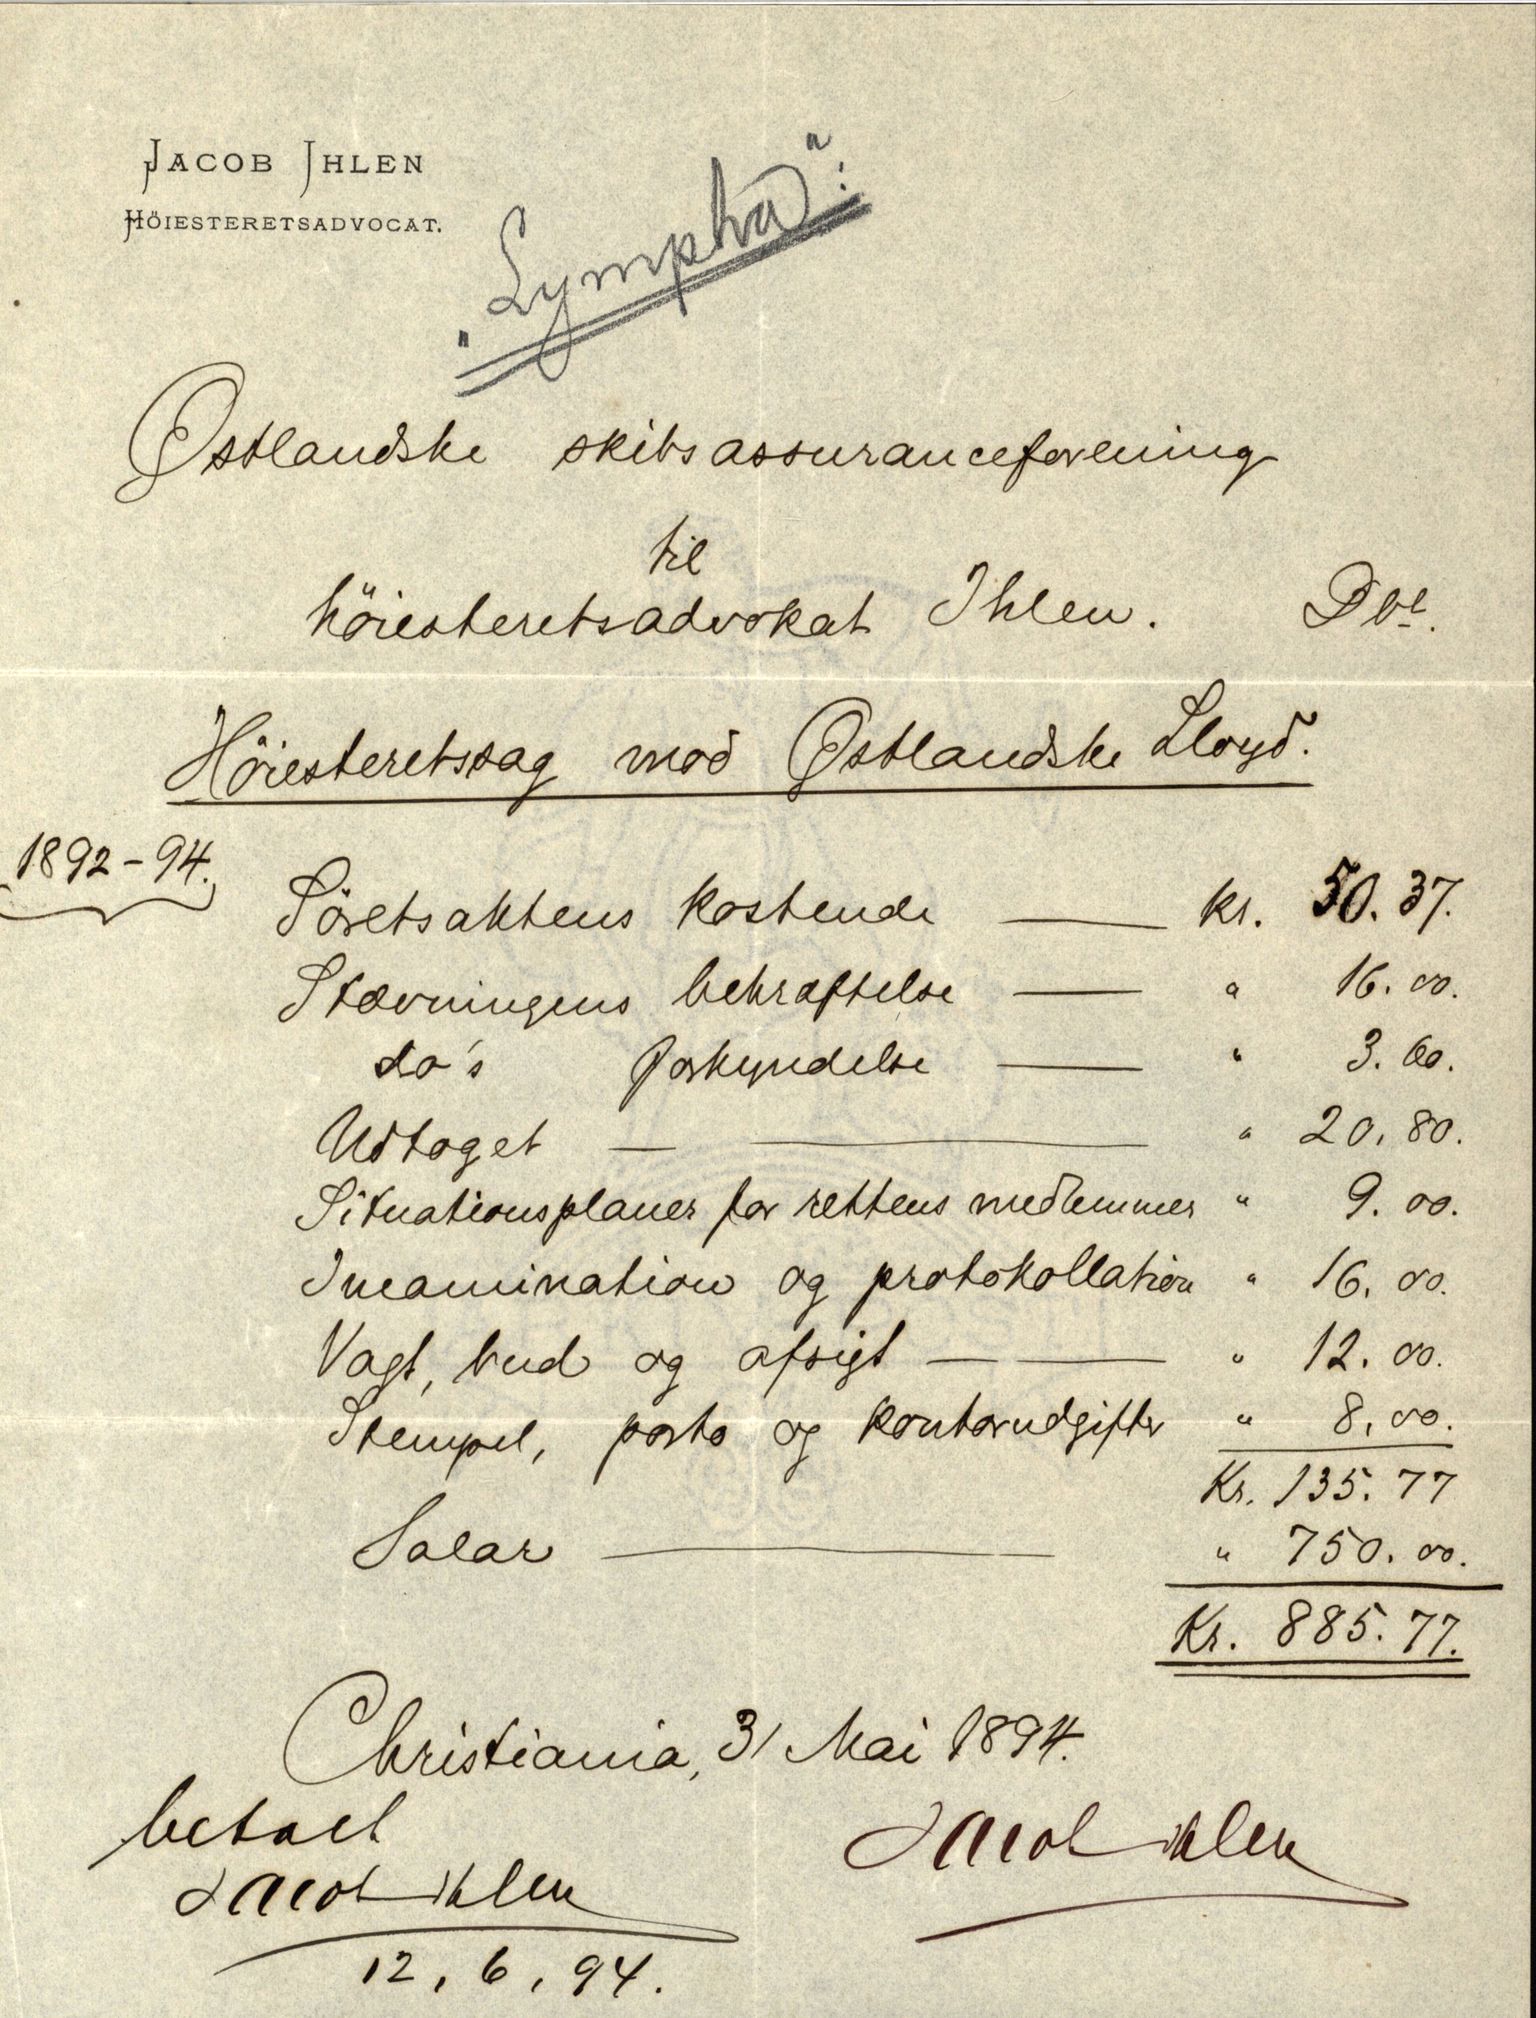 JACOB IHLEN
HÖIESTERETSADVOCAT.
"Lympha":
Østlandske skibsassuranceforening
til
höiesteretsadvokat Ihlen. Dbe.
Höiesteretssag mod Østlandske Lloyd.
1892-94.
Söretsaktens kostende — kr. 50.37.
Stævningens bekræftelse — " 16.00.
do's forkyndelse — " 3.60.
Udtoget — — " 20.80.
Situationsplaner for rettens medlemmer " 9.00.
Incamination og protokollation " 16.00.
Vagt, bud og afsigt — — " 12.00.
Stempel, porto og kontorudgifter " 8.00.
Kr. 135.77
Salær — " 750.00.
Kr. 885.77.
Christiania, 31 Mai 1894.
betalt
Jacob Ihlen
Jacob Ihlen
12.6.94.